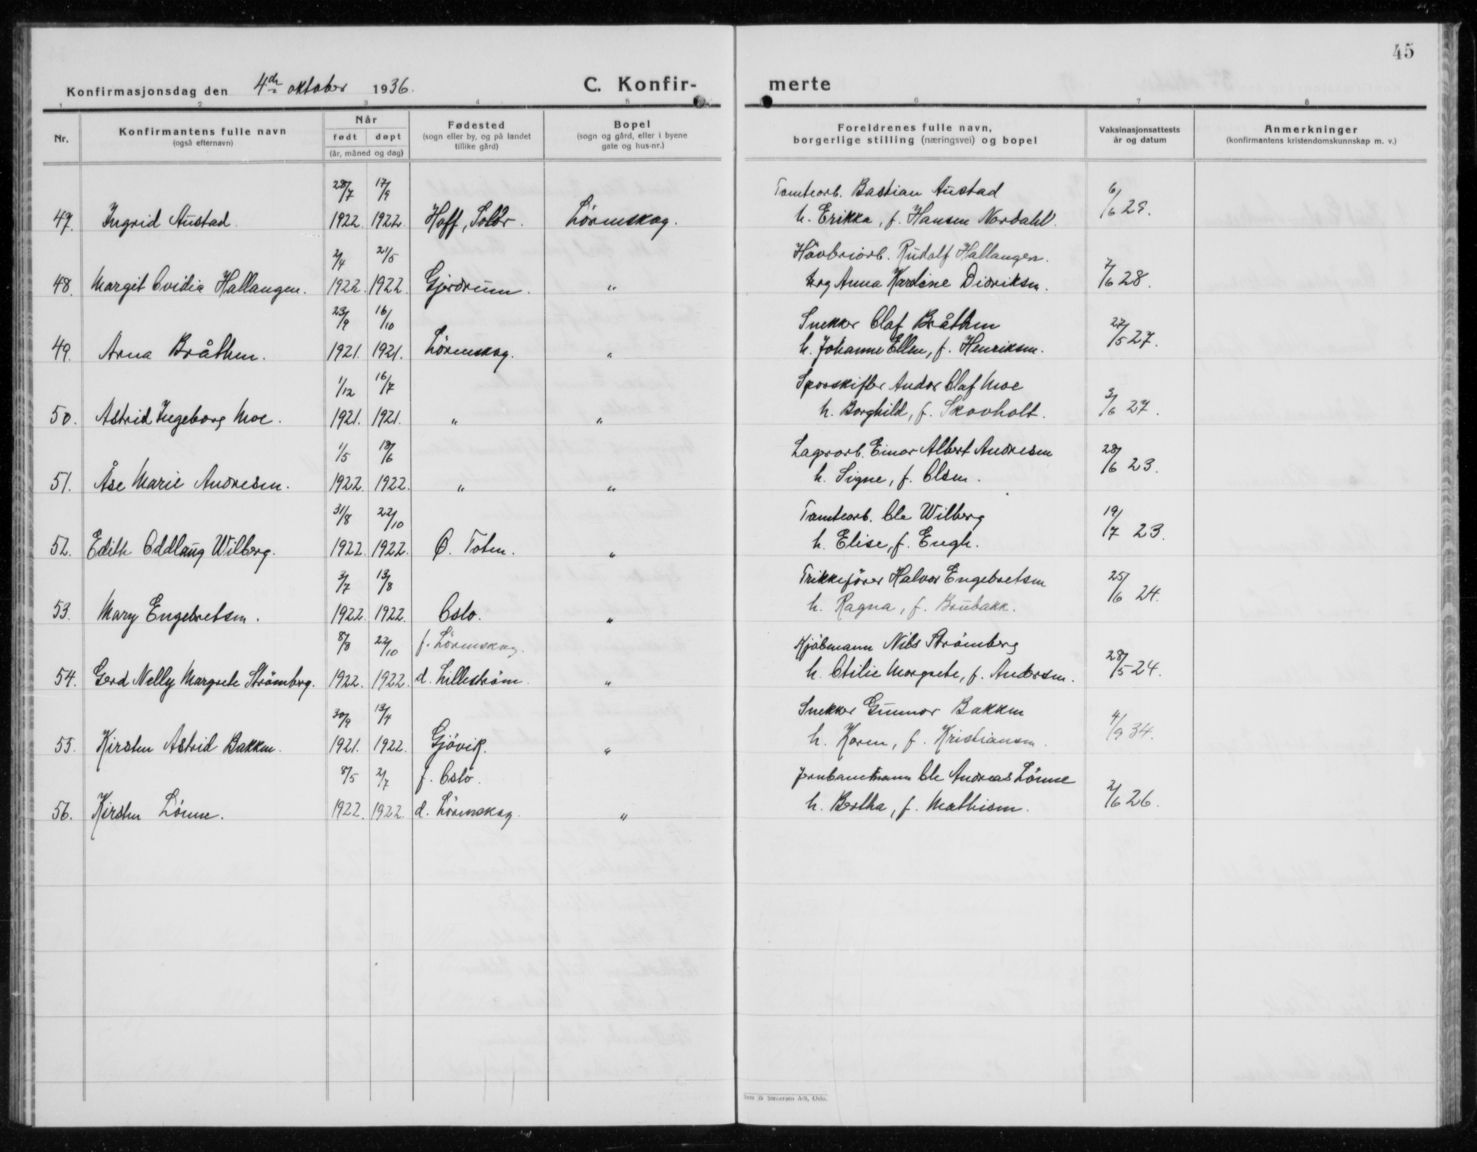 45
Konfirmasjonsdag den 4de oktober 1936.
C. Konfir-
merte
1 2 3 4 5 6 7 8
Nr.
Konfirmantens fulle navn
(også efternavn)
Når
født døpt
(år, måned og dag)
Fødested
(sogn eller by, og på landet
tillike gård)
Bopel
(sogn og gård, eller i byene
gate og hus-nr.)
Foreldrenes fulle navn,
borgerlige stilling (næringsvei) og bopel
Vaksinasjonsattests
år og datum
Anmerkninger
(konfirmantens kristendomskunnskap m. v.)
28/7 17/9 Tomtearb. Bastian Austad 6/6 29.
47. Ingrid Austad. 1922 1922 Hoff, Solør. Lørenskog. h. Erikka, f. Hansen Nordahl.
2/4 21/5 Rudolf Hallangen. 7/6 28.
48. Margit Ovidia Hallangen. 1922. 1922. Gjerdrum. " Anna Karoline Didriksen.
23/9 16/10 Snekker Olaf Bråthen 27/5 27.
49. Arna Bråthen. 1921. 1921. Lørenskog. " h. Johanne Ellen, f. Henriksen.
1/12 16/7 Sporskifter Andor Olaf Moe 3/6 27.
50. Astrid Ingeborg Moe. 1921. 1921. " " h. Borghild, f. Skovholt.
1/5 18/6 Lagerarb. Einar Albert Andresen 28/6 23.
51. Åse Marie Andresen. 1922 1922. " " h. Signe, f. Olsen.
31/8 22/10 Tomtearb. Ole Wilberg 19/7 23.
52. Edith Oddlaug Wilberg. 1922. 1922. Ø. Toten. " h. Elise, f. Engh.
3/7 13/8 Trikkefører Halvor Engebretsen 25/6 24.
53. Mary Engebretsen. 1922 1922. Oslo. " h. Ragna, f. Brubakk.
8/8 22/10 f. Lørenskog. Kjøbmann Nils Strømberg 28/5 24.
54. Gerd Nelly Margrete Strømberg. 1922. 1922. d. Lillestrøm. " h. Otilie Margrete, f. Andersen.
30/9 13/4 Snekker Gunnar Bakken 4/9 34.
55. Kirsten Astrid Bakken. 1921. 1922. Gjøvik. " h. Karen, f. Kristiansen.
8/5 2/7 f. Oslo. Jernbanemann Ole Andreas Lønne 2/6 26.
56. Kirsten Lønne. 1922. 1922. d. Lørenskog. " h. Bertha, f. Mathisen.